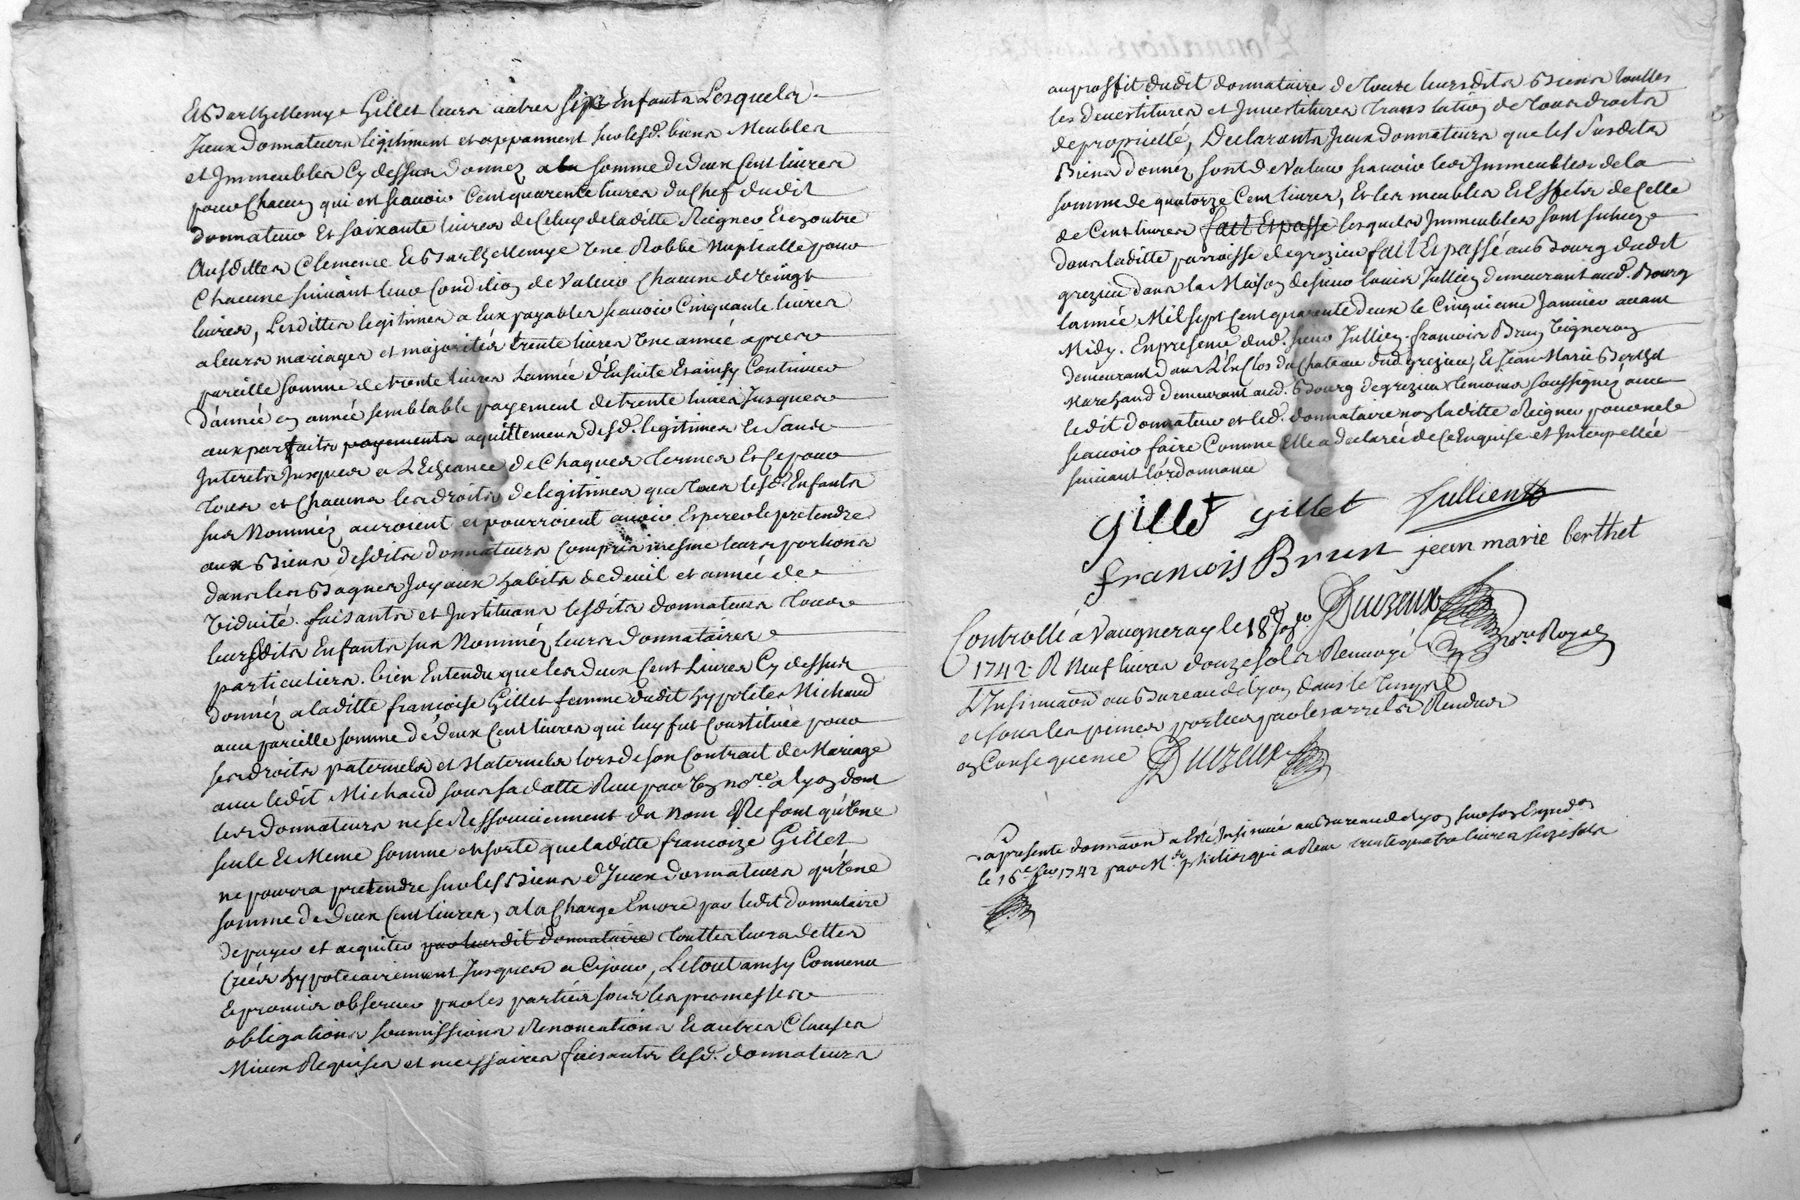 Et Barthellemye Gillet leurs autres six Enfants Lesquels
Iceux Donnateurs légitiment et appannent sur lesd. biens Meubles
et Immeubles Cy dessus donnez a la somme de deux Cent livres
pour Chacun qui est scauoir Cent quarente livres du Chef dudit
donnateur Et soixante livres de Celuy de laditte Reigner Et outre
Ausdittes Clemence Et Barthellemye Une Robbe nuptialle pour
Chacune suiuant leur Condition de Valeur Chacune de Vingt
livres, Lesdittes legitimes a Eux payables scauoir Cinquante livres
a leurs mariages et majorités trente livres Une année apres
pareille somme de trente livres L'année d'Ensuite Et ainsy Continuer
d'année en année semblable payement de trente livres Jusques
aux parfaits payements aquittement desd. legitimes Et sans
Interets Jusques a L'Echeance de Chaques Termes Et ce pour
Tous et Chacuns les droits de legitimes que Tous lesd. Enfants
sus Nommés auroient et pourroient auoir Esperer Et pretendre
aux Biens desdits donnateurs Compris mesme leurs portions
dans les Bagues Joyaux habits de deuil et année de
Viduité. faisants et Instituans lesdits donnateurs Tous
leursdits Enfants sus Nommés leurs donnataires
particuliers. bien Entendu que les deux Cent Livres Cy dessus
donnés a laditte françoise Gillet femme dudit hypolite Michaud
auec pareille somme de deux Cent livres qui luy fut Constituée pour
ses droits paternels et Maternels lors de son Contrait de Mariage
auec ledit Michaud sous sa datte Reçu par Un nore. a lyon dont
les donnateurs ne se Ressouviennent du nom Ne font qu'Une
seule Et Meme somme ensorte que laditte françoize Gillet
ne pourra pretendre sur les Biens d'Iceux donnateurs qu'Une
somme de Deux Cent livres, a la Charge Encore par ledit donnataire
de payer et acquiter par leurdit donnataire Touttes leurs dettes
Créés hypotecairement Jusques a Cejour, Le tout ainsy Convenu
Et promis observer par les parties sous les promesses
obligations soumissions Renonciations Et autres Clauses
Mieux Requises et necessaires faisants lesd. donnateurs
au proffit dudit donnataire de Tous leursdits Biens Touttes
les deuestitures et Inuestitures Translation de Tous droits
de proprietté, Declarants Iceux donnateurs que les susdits
Biens donnés sont de Valeur scauoir les Immeubles de la
somme de quatorze Cent livres, Et les meubles Et Effets de Celle
de Cent livres fait Et passé lesquels Immeubles sont situez
dans laditte parroisse de grezieu fait Et passé au Bourg dudit
grezieu dans la Maison de sieur louis Jullien demeurant aud. Bourg
l'année Mil sept Cent quarante deux le Cinquieme Janvier auant
Midy. En presence dud. sieur Jullien francois Brun Vigneron
demeurant dans L'Enclos du Chateau dud. grezieu, Et Jean Marie Berthet
Marchand demeurant aud. Bourg de grezieux temoins soussignez auec
ledit donnateur et led. donnataire non laditte Reigner pour ne le
scauoir faire Comme Elle a declarée de ce Enquise et Interpellée
suiuant l'ordonnance
Gillet Gillet Jullien
francois Brun jean marie berthet
Duzeux
nore. Royal
Controllé a Vaugneray le 18
1742. R Neuf livres douze sols Renuoyé
L'Insinuaon au Bureau de lyon dans le Temps
et sous les peines portees par les arrets Rendus
en Consequence Duzeux
La presente donnaon a Eté Insinuée au Bureau de lyon
le 16e. feu. 1742 par Mr. philis qui a Reçu trente quatre livres seize sols